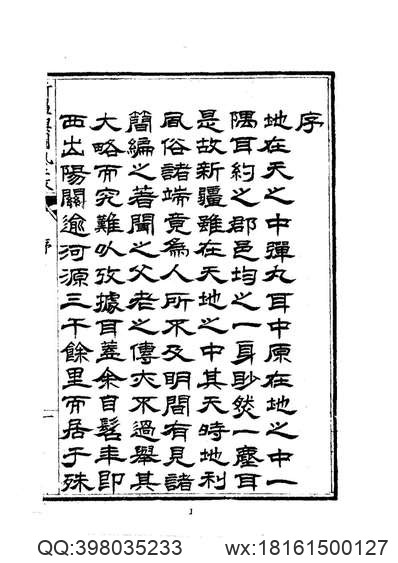 序
地在天之中彈丸耳中原在地之中一
隅耳約之郡邑均之一身眇然一塵耳
是故新疆雖在天地之中其天時地利
風俗諸端竟為人所不及明間有見諸
簡編之著聞之父老之傳亦不過舉其
大略而究難以攷據耳蓋余自髫年即
西出陽關逾河源三千餘里而居于殊
序
一
1
QQ:398035233 wx:18161500127